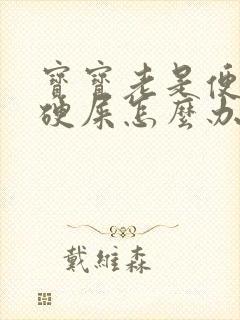 寶寶老是便
硬屎怎麼办
戴維森